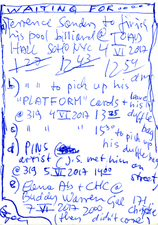 WAITING FOR......
a) Terrence Sanders to finish
his pool billiard @ TOAD
HALL SOHO NYC 4 VI 2017
1227 1243 1254
b) " " to pick up his
"PLATFORM" cards + his
@ 319 4 VI 2017 1325 duffle bag
c) " " " 1530 to pick up
his duffle bag
d) PINS
artist J.S. met him on street
@ 319 5 VI 2017 1400
e) Elena Ab + CHC @
Buddy Warren Gal 171
7 VI 2017 2000 chrystie
(they didn't come)